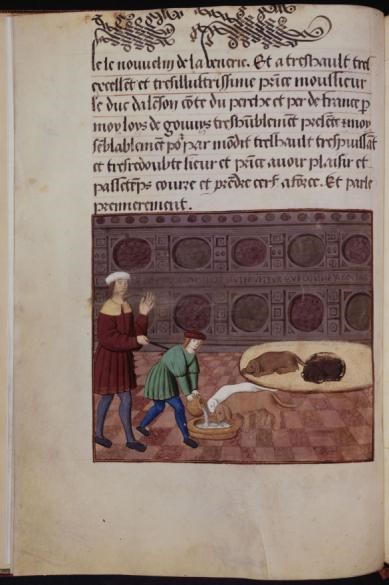 le le nouvelin de la venerie. Et a treshault tres
excellent et tresillustrissime prīce monsieur
le duc dalēson cōte du perche et per de france p
moy loys de gouuys treshūblement presēte ⁊ moy
sēblablemēt po² par mōdit treshault trespuissāt
et tresredoubte sieur et prīce avoir plaisir et
passetēps courre et prēdre cerf aforce. Et parle
premierement.